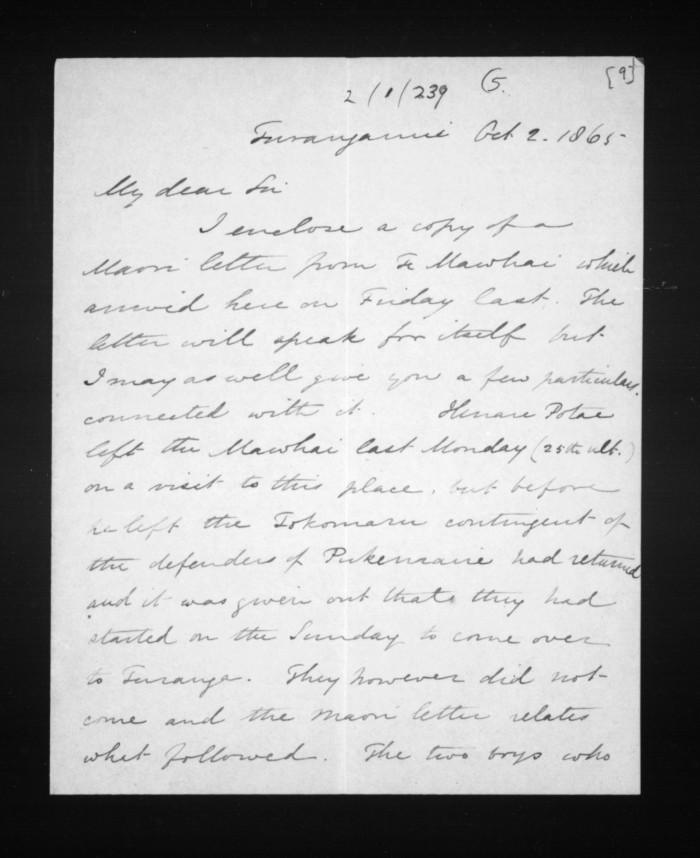 2/1/239 G. [9]
Turanganui Oct 2. 1865
My dear Sir
I enclose a copy of a
Maori letter from Te Mawhai which
arrived here on Friday last. The
letter will speak for itself but
I may as well give you a few particulars
connected with it. Henare Potae
left the Mawhai last Monday (25th ult.)
on a visit to this place. but before
he left the Tokomaru contingent of
the defenders of Pukemaire had returned
and it was given out that they had
started on the Sunday to come over
to Turanga. They however did not
come and the Maori letter relates
what followed. The two boys who